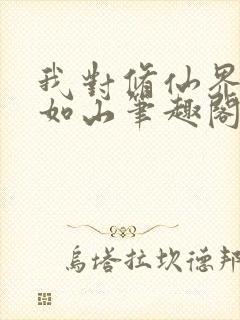 我對脩仙界
如山筆趣閣
烏塔拉坎德邦